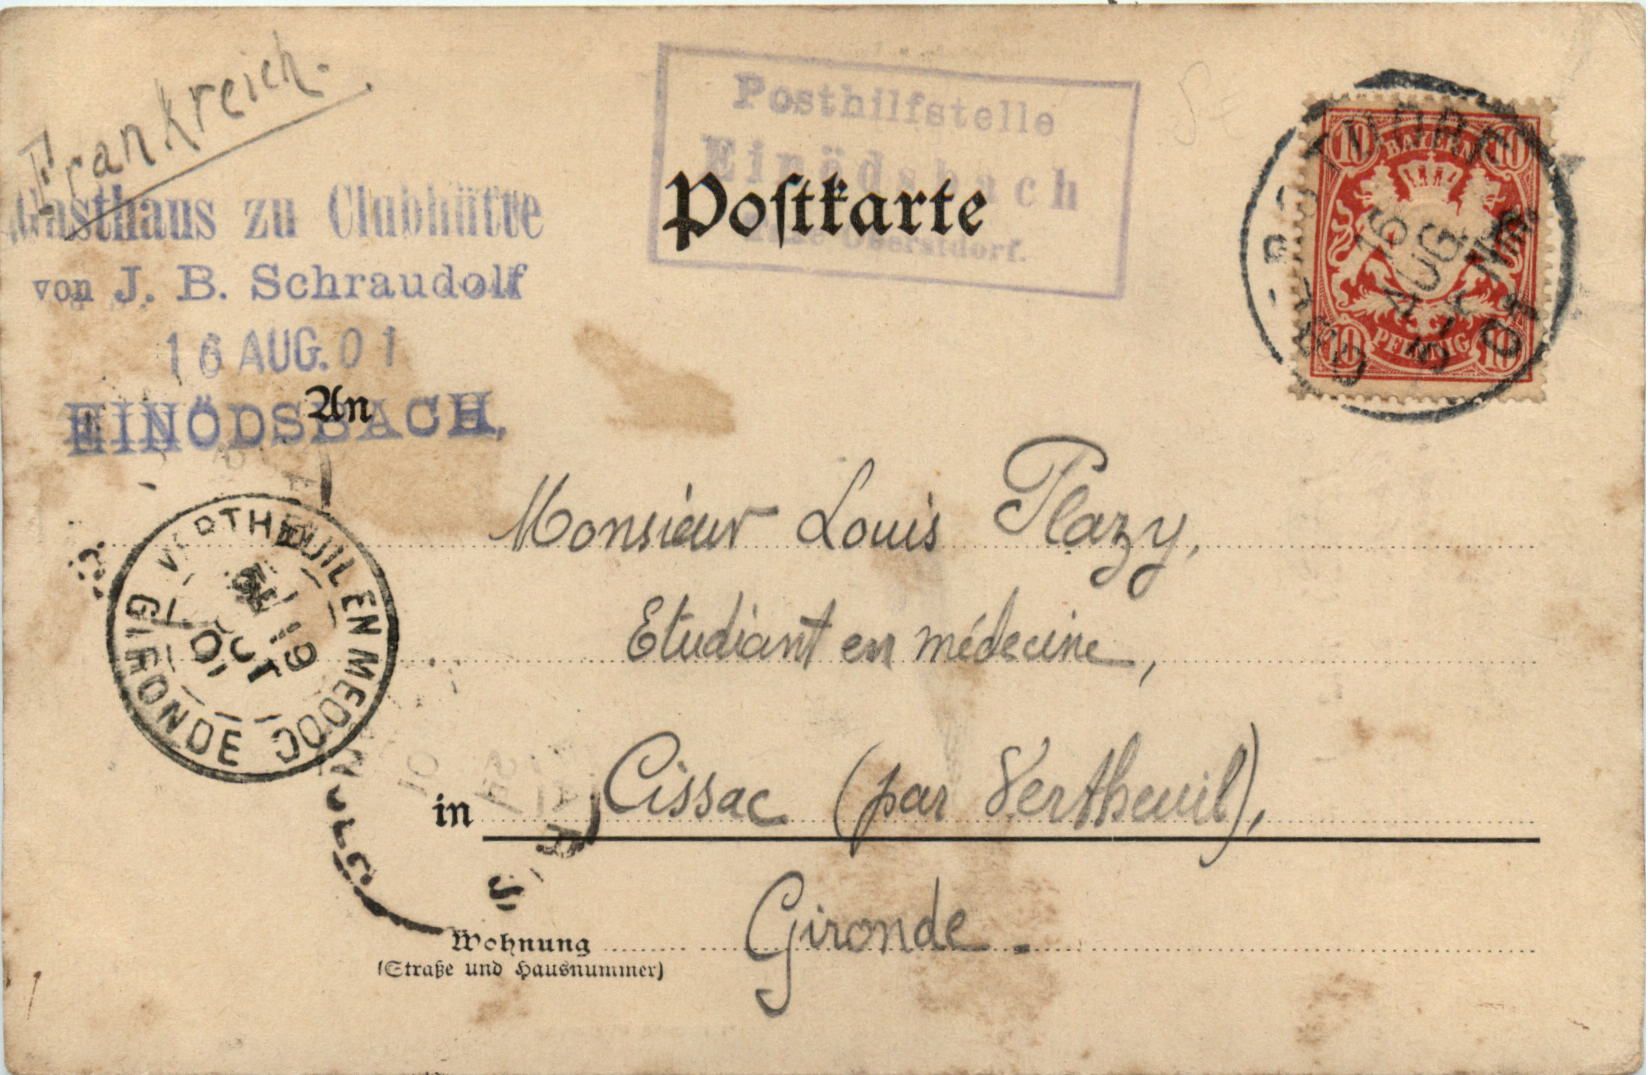 Frankreich.
Gasthaus zu Clubhütte
von J. B. Schraudolf
16 AUG. 01
EINÖDSBACH.
Posthilfstelle
Einödsbach
Oberstdorf.
Postkarte
10 BAYERN 10
10 PFENNIG 10
16
AUG
01
An
VERTHEUIL EN MEDOC
GIRONDE
19
OCT
01
Monsieur Louis Plazy,
Etudiant en médecine,
in Cissac (par Vertheuil),
Gironde.
Wohnung
(Straße und Hausnummer)